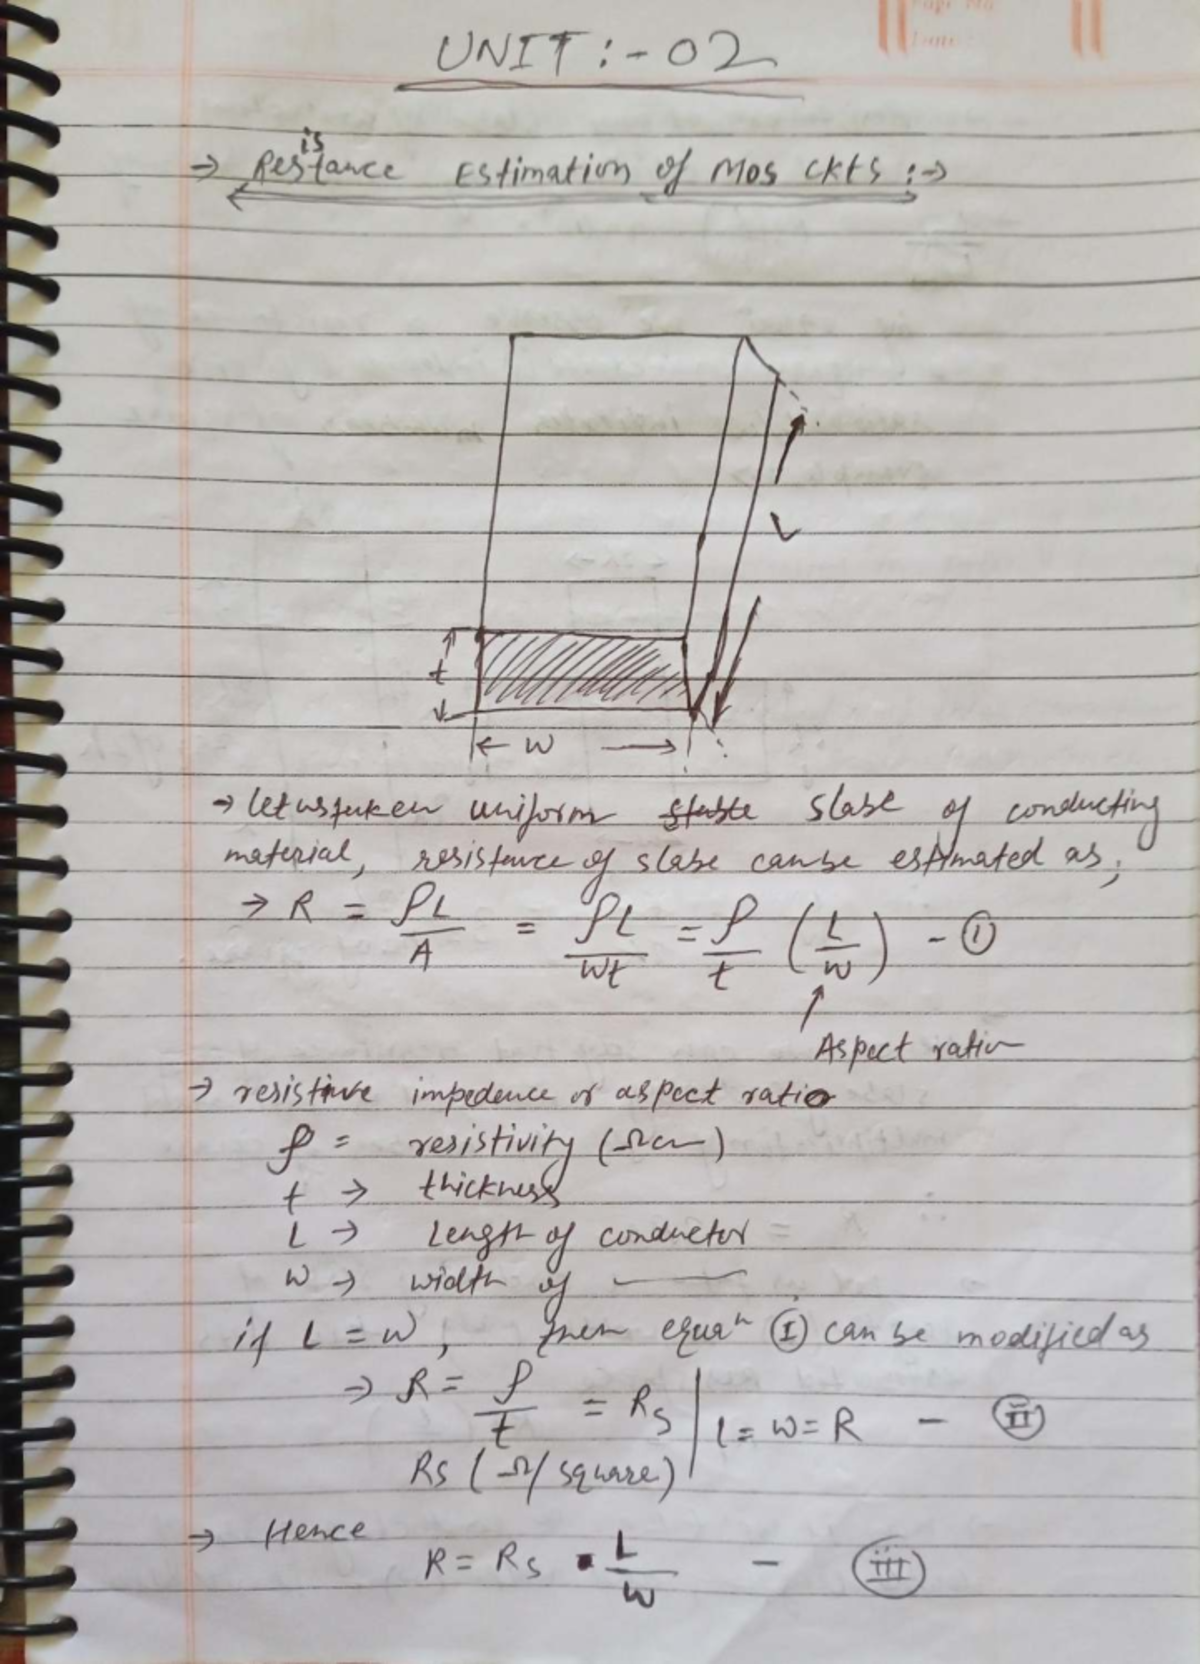 UNIT :- 02
→ Resistance Estimation of Mos ckts :→
L
t
← W →
→ let us taken uniform stable slabe of conducting
material, resistence of slabe can be estimated as,
→ R = ρL/A = ρL/Wt = ρ/t (L/W) - ①
↑
Aspect ratio
→ resistive impedence or aspect ratio
ρ = resistivity (Ωcm)
t → thickness
L → Length of conductor
W → width of —
if L = W, then equaⁿ Ⓘ can be modified as
→ R = ρ/t = Rs | L = W = R - (ii)
Rs (Ω/square)
→ Hence
R = Rs · L/W - (iii)